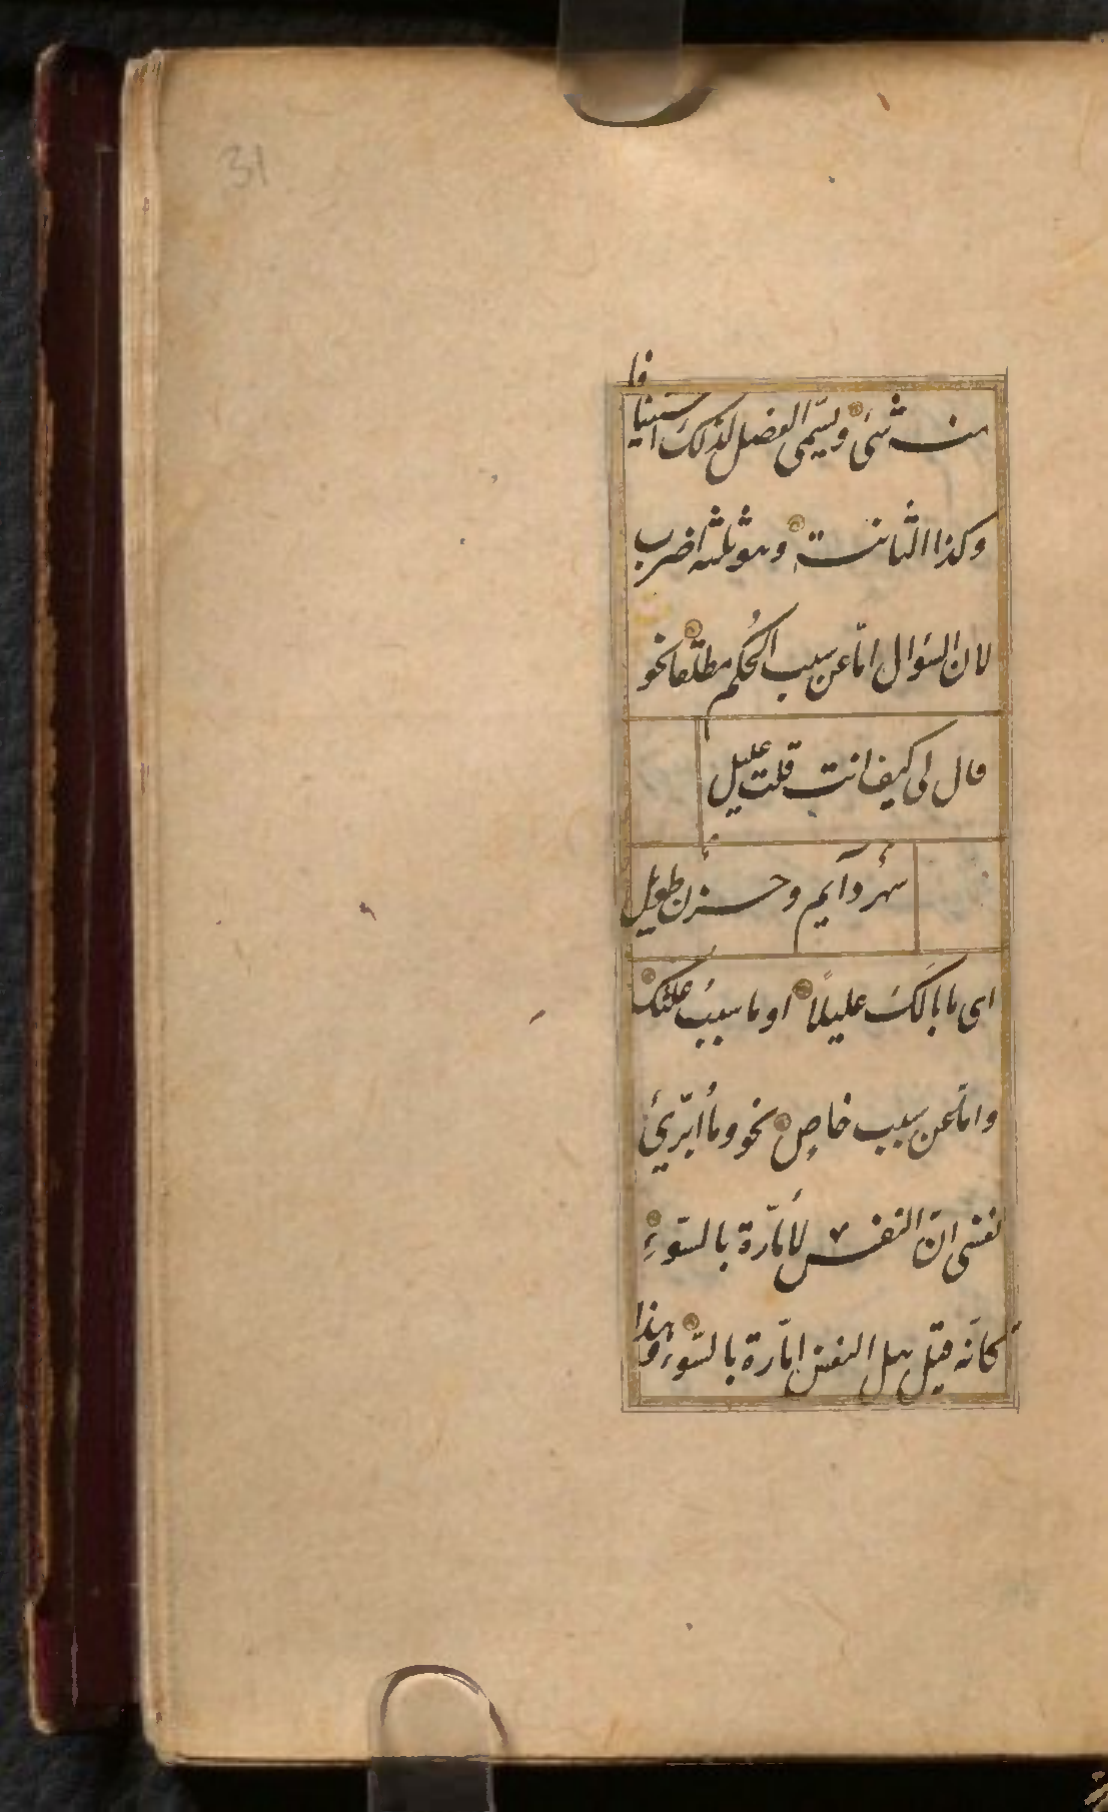 31
منه شئ ويسمى الفصل لذلك استينافا
وكذا الثانية وهو ثلثه اضرب
لان السؤال اما عن سبب الحكم مطلقا نحو
قال لى كيف انت قلت عليل
سهر دآيم وحزن طويل
اى ما بالك عليلاً او ما سبب علتك
واما عن سبب خاص نحو وما أبرّئ
نفسى انّ النفس لأمّارة بالسّوء
كانّه قيل هل النفس امّارة بالسّوء وهذا